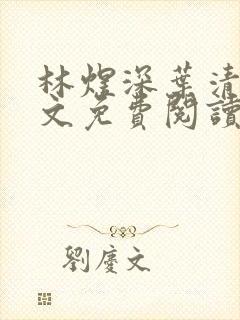 林煜深葉清
文免費閱讀
劉慶文